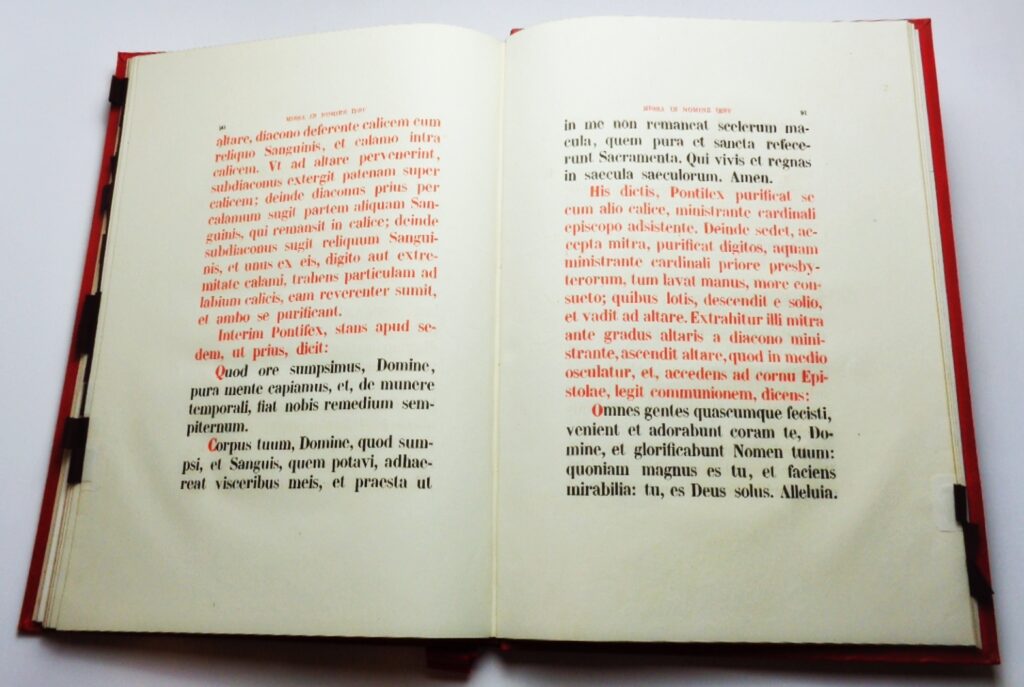 90
MISSA IN NOMINE IESU
altare, diacono deferente calicem cum
reliquo Sanguinis, et calamo intra
calicem. Vt ad altare pervenerint,
subdiaconus extergit patenam super
calicem; deinde diaconus prius per
calamum sugit partem aliquam San-
guinis, qui remansit in calice; deinde
subdiaconus sugit reliquum Sangui-
nis, et unus ex eis, digito aut extre-
mitate calami, trahens particulam ad
labium calicis, eam reverenter sumit,
et ambo se purificant.
Interim Pontifex, stans apud se-
dem, ut prius, dicit:
Quod ore sumpsimus, Domine,
pura mente capiamus, et, de munere
temporali, fiat nobis remedium sem-
piternum.
Corpus tuum, Domine, quod sum-
psi, et Sanguis, quem potavi, adhae-
reat visceribus meis, et praesta ut
MISSA IN NOMINE IESU
91
in me non remaneat scelerum ma-
cula, quem pura et sancta refece-
runt Sacramenta. Qui vivis et regnas
in saecula saeculorum. Amen.
His dictis, Pontifex purificat se
cum alio calice, ministrante cardinali
episcopo adsistente. Deinde sedet, ac-
cepta mitra, purificat digitos, aquam
ministrante cardinali priore presby-
terorum, tum lavat manus, more con-
sueto; quibus lotis, descendit e solio,
et vadit ad altare. Extrahitur illi mitra
ante gradus altaris a diacono mini-
strante, ascendit altare, quod in medio
osculatur, et, accedens ad cornu Epi-
stolae, legit communionem, dicens:
Omnes gentes quascumque fecisti,
venient et adorabunt coram te, Do-
mine, et glorificabunt Nomen tuum:
quoniam magnus es tu, et faciens
mirabilia: tu, es Deus solus. Alleluia.